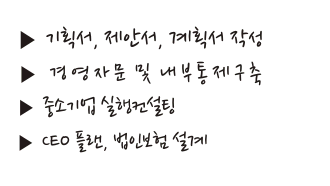 ▶ 기획서, 제안서, 계획서 작성
▶ 경영자문 및 내부통제구축
▶ 중소기업 실행컨설팅
▶ CEO 플랜, 법인보험 설계